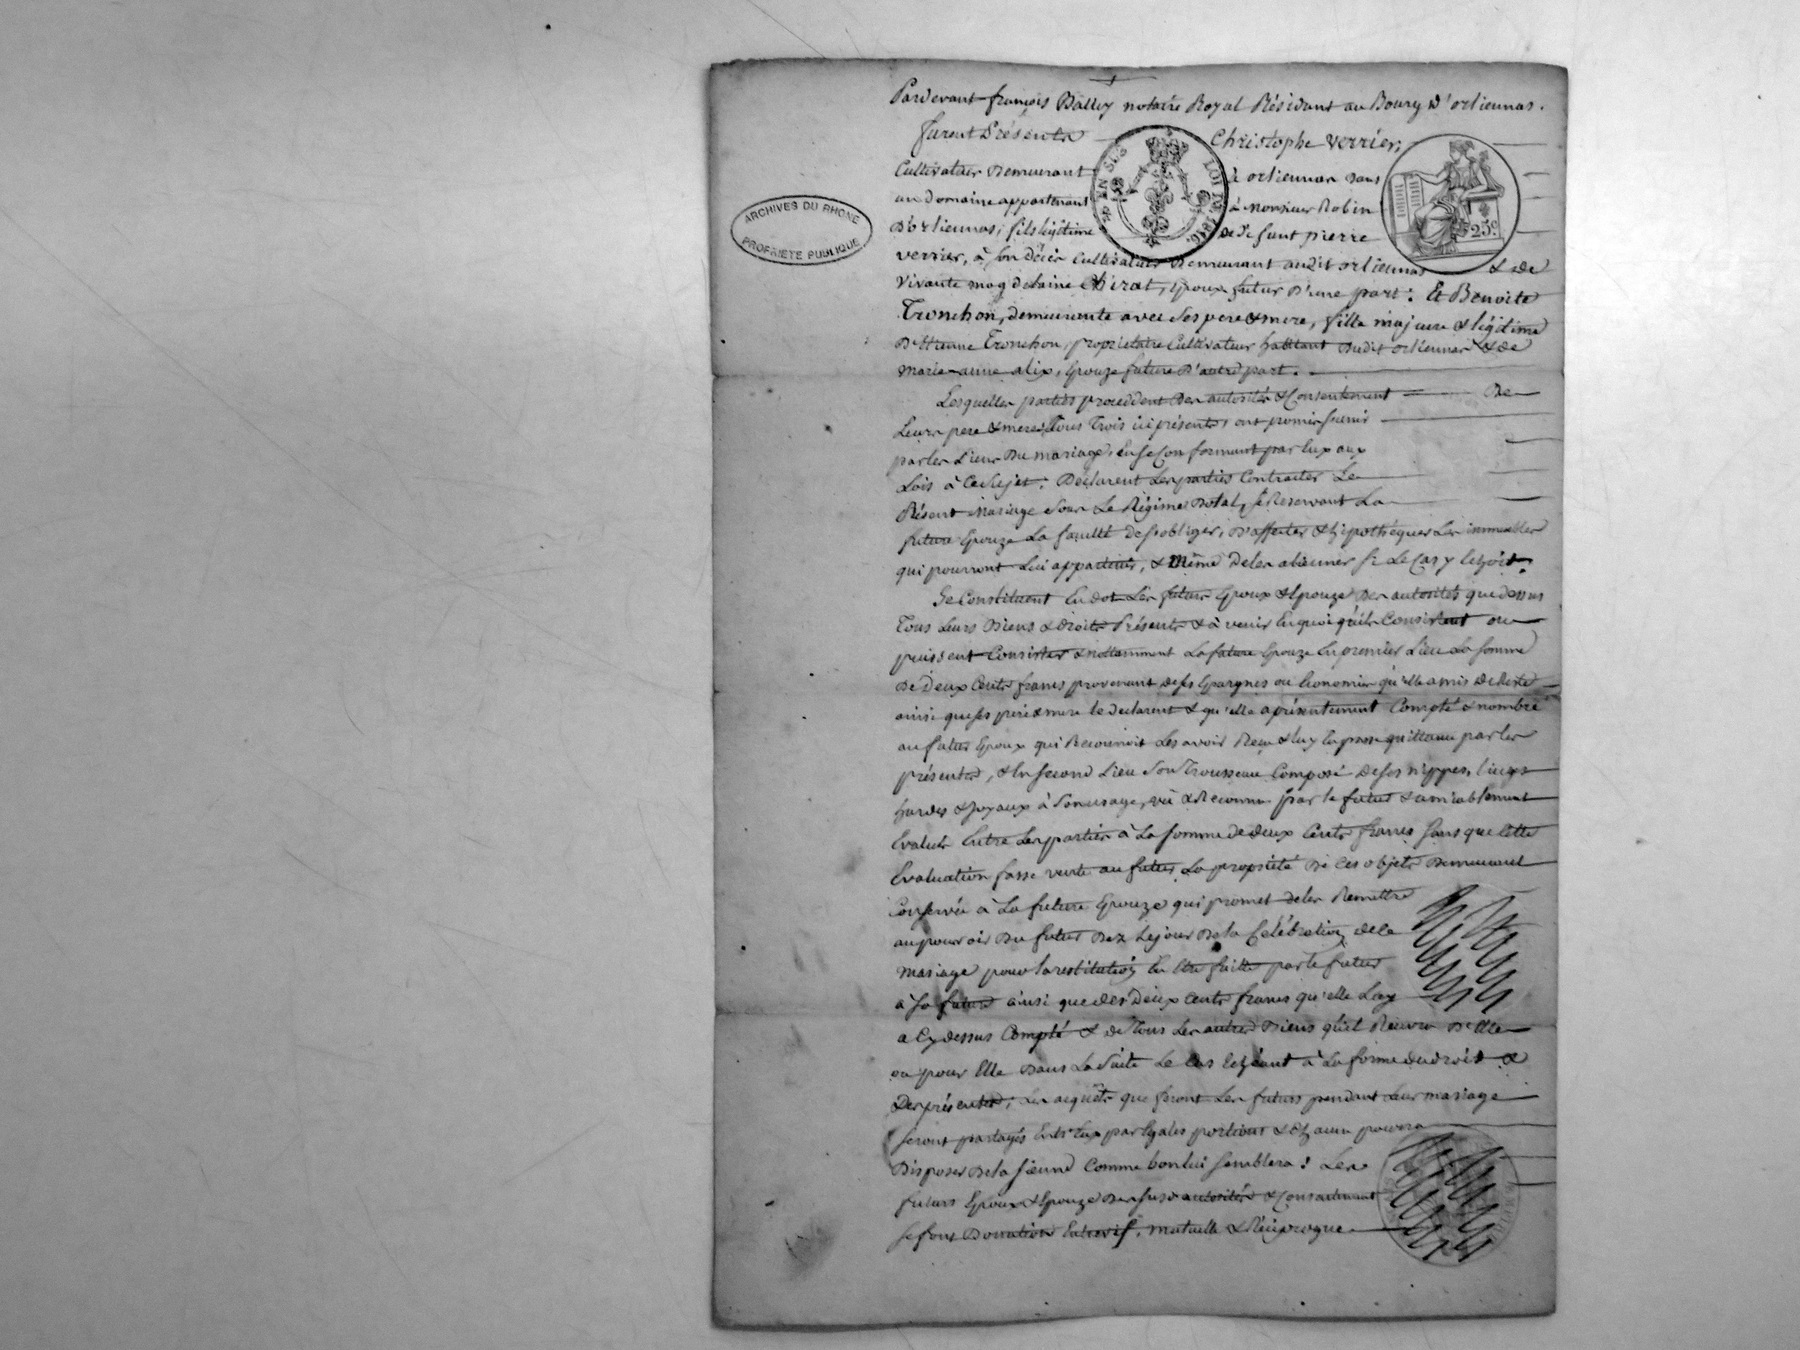 Pardevant françois Dalley notaire Royal Résidant au Bourg d'orliennas.
furent Présents Christophe verrier,
Cultivateur Demeurant à orliennas dans
un Domaine appartenant à Monsieur Robin
D'orliennas, fils légitime de défunt pierre
verrier, à son décès Cultivateur Demeurant audit orliennas & de
vivante magdelaine Chirat, Epoux futur D'une part: Et Benoite
Tronchon, demeurante avec ses pere & mere, fille majeure & légitime
D'Etienne Tronchon, propriétaire Cultivateur habitant dudit orliennas & de
marie-anne alix, Epouze future D'autre part.
Lesquelles parties procédent Des autorités & Consentement De
Leurs pere & mere, Tous Trois ici présents, ont promis s'unir
par les Liens Du mariage, en se Conformant par Eux aux
Lois à Ce sujet. Déclarent Les parties Contracter Le
Présent Mariage sous Le Régime Dotal, se Réservant La
future Epouze La faculté de s'obliger, D'affecter & hipothéquer Les immeubles
qui pourront Lui appartenir, & Même De les aliéner si Le Cas y Echoit.
Se Constituent En dot Les futurs Epoux & Epouze Des autorités que dessus
Tous Leurs Biens & droits Présents & à venir En quoi qu'ils Consistent ou
puissent Consister & nottamment La future Epouze En premier Lieu La somme
De Deux Cents francs provenant de ses Epargnes ou Economies qu'elle a mis De Reste
ainsi que ses pere & mere le déclarent & qu'elle a présentement Compté & nombré
au futur Epoux qui Reconnoit Les avoir Reçu & luy En passe quittance par les
présentes, & En second Lieu Son Trousseau Composé de ses nippes, linges
hardes & joyaux à son usage, vu & Reconnu par le futur & amiablement
Evalués Entre Les parties à La somme de deux Cents francs sans que Cette
Evaluation fasse vente au futur La propriété De Ces objets Demeurant
Conservée à La future Epouze qui promet de les Remettre
au pouvoir Du futur Dez Le jour De la Célébration de Ce
mariage pour la restitution En Etre faitte par le futur
à La future ainsi que des Deux Cents francs qu'elle Luy
a Cy dessus Compté & de Tous Les autres Biens qu'il Recevra D'Elle
ou pour Elle Dans La Suite Le Cas Echéant à La forme du droit &
Des présentes; Les acquêts que feront Les futurs pendant Leur mariage
seront partagés Entr'Eux par Egales portions & Chacun pourra
Disposer De la sienne Comme bon lui semblera: Les
futurs Epoux & Epouze Des susd autorités & Consentement
se font Donation Entrevif, mutuelle & Réciproque
ARCHIVES DU RHONE
PROPRIÉTÉ PUBLIQUE
EN SUS
LOI DE 1816.
25c